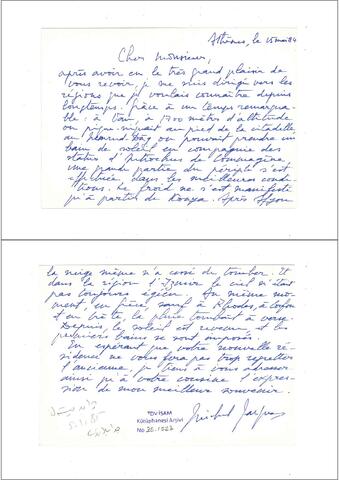 Athènes, le 15 mai 84
Cher Monsieur,
après avoir eu le très grand plaisir de
vous revoir, je me suis dirigé vers les
régions que je voulais connaître depuis
longtemps. Grâce à un temps remarqua-
ble: à Van, à 1700 mètres d'altitude
on pique-niquait au pied de la citadelle,
au Nemrud Dağ on pouvait prendre un
bain de soleil en compagnie des
statues d'Antiochus de Commagène,
une grande partie du périple s'est
effectuée dans les meilleures condi-
tions. Le froid ne s'est manifesté
qu'à partir de Konya. Après Afyon
la neige même n'a cessé de tomber. Et
dans la région d'Izmir le ciel n'était
pas toujours égéen. Au même mo-
ment, en Grèce, sauf à Rhodes, à Cos
et en Crète, la pluie tombait à verse.
Depuis, le soleil est revenu, et les
premiers bains se sont imposés.
En espérant que votre nouvelle ré-
sidence ne vous fera pas trop regretter
l'ancienne, je tiens à vous adresser
ainsi qu'à votre cousine l'expres-
sion de mon meilleur souvenir.
TDV İSAM
Kütüphanesi Arşivi
No